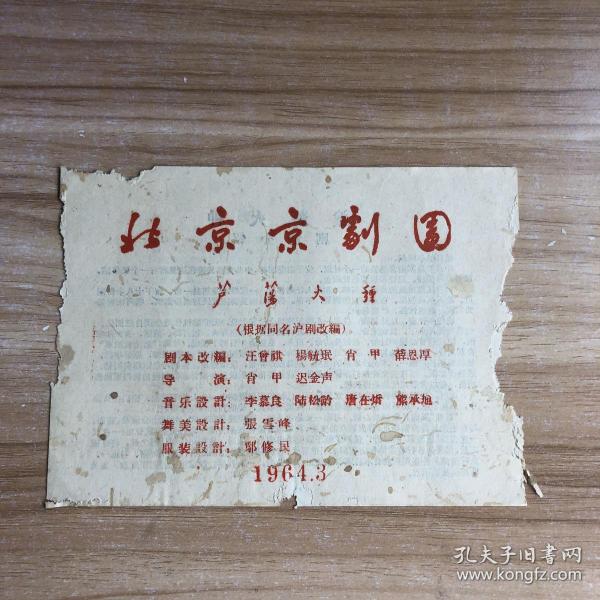 北京京劇团
芦蕩火種
(根据同名沪剧改編)
剧本改編：汪曾祺 楊毓珉 肖甲 薛恩厚
导演：肖甲 迟金声
音乐設計：李慕良 陆松龄 唐在炘 熊承旭
舞美設計：張雪峰
服装設計：鄢修民
1964.3
孔夫子旧書网
www.kongfz.com